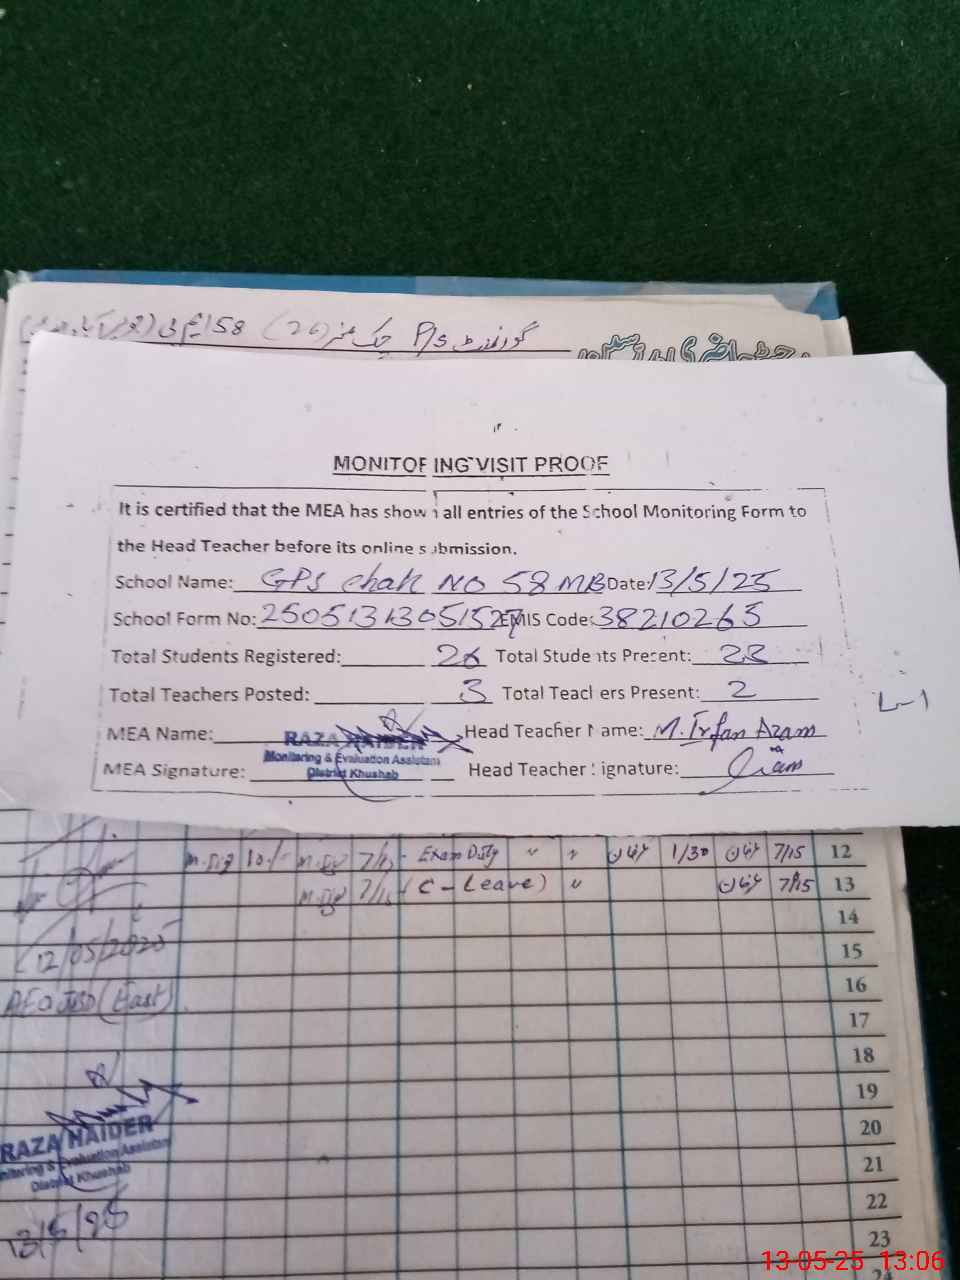 گورنمنٹ P/S چک نمبر (26) 58
MONITORING VISIT PROOF
It is certified that the MEA has shown all entries of the School Monitoring Form to
the Head Teacher before its online submission.
School Name: GPS chak NO 58 MB Date: 13/5/25
School Form No: EMIS Code: 38210265
Total Students Registered: 26 Total Students Present: 23
Total Teachers Posted: 3 Total Teachers Present: 2
L-1
MEA Name: RAZA HAIDER Head Teacher Name: M. Irfan Azam
Monitoring & Evaluation Assistant
District Khushab
MEA Signature: Head Teacher Signature:
Exam Duty " " 1/30 7/15 12
(C-Leave) " 7/15 13
14
12/05/2025
15
AEO JBD (East)
16
17
18
19
RAZA HAIDER
20
Monitoring & Evaluation Assistant
District Khushab
21
22
13/5/25
23
13-05-25 13:06